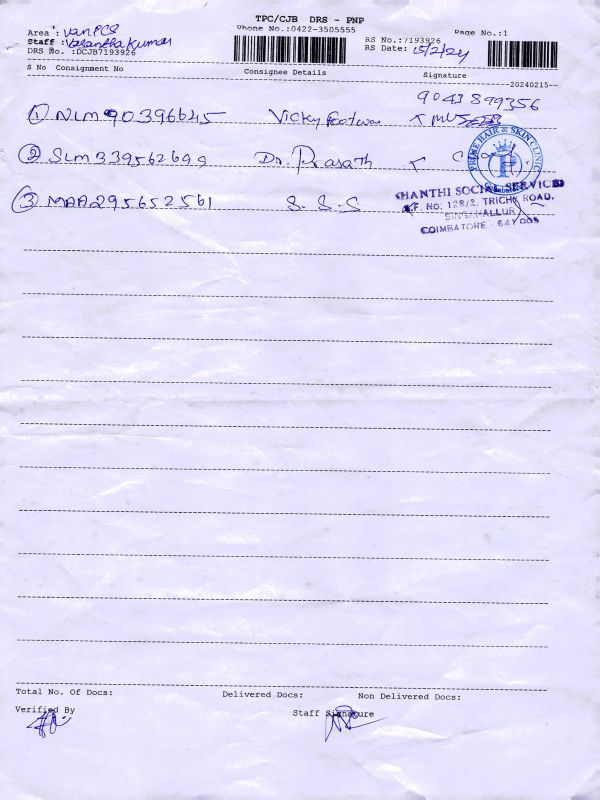 TPC/CJB DRS - PNP
Area : VanPCS Phone No.:0422-3505555 Page No.:1
Staff : Vasantha Kumar RS No.:7193926
DRS No. :DCJB7193926 RS Date: 15/2/24
S No Consignment No Consignee Details Signature
--20240215--
9043899356
① NLM90396645 Vicky footwear
② SLM339562699 Dr. Prasath
PRIME HAIR & SKIN CLINIC
③ MAA295652561 S.S.S
SHANTHI SOCIAL SERVICES
S.F. NO: 128/2, TRICHY ROAD,
SINGANALLUR
COIMBATORE - 641 005
Total No. Of Docs: Delivered Docs: Non Delivered Docs:
Verified By Staff Signature